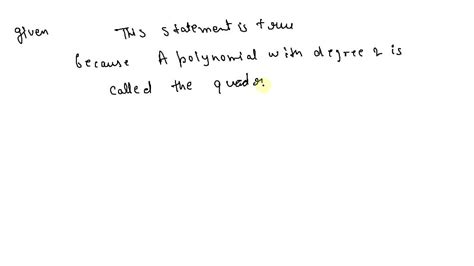 given This statement is true
because A polynomial with degree 2 is
called the quadr